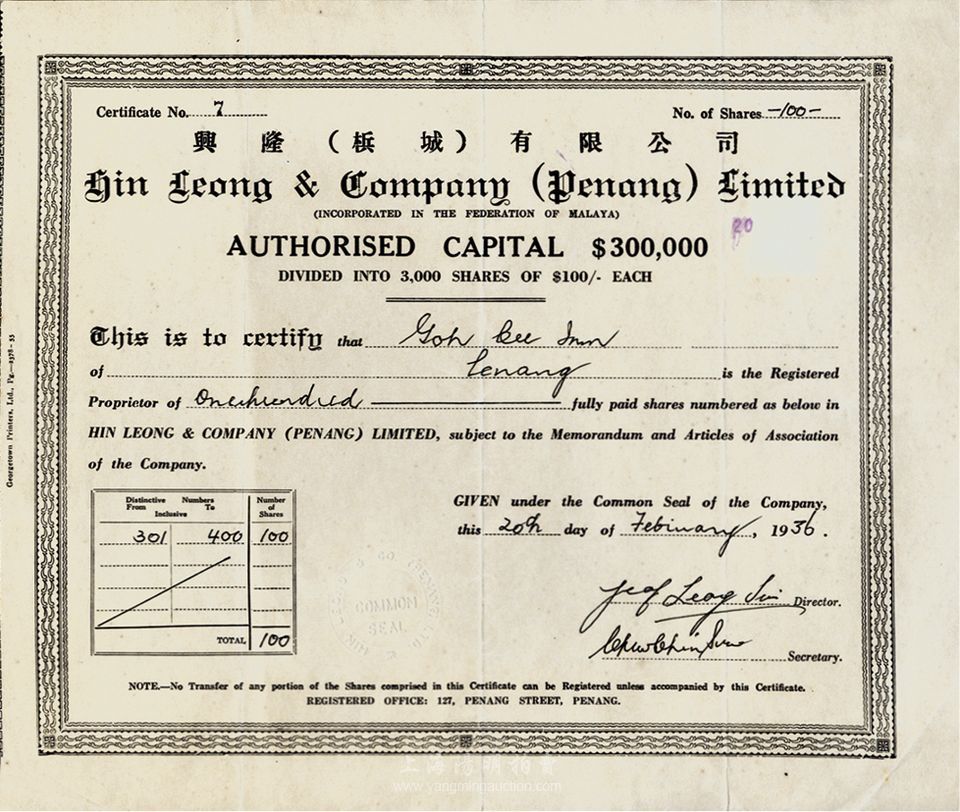 Certificate No. 7
No. of Shares -100-
興隆(梹城)有限公司
Hin Leong & Company (Penang) Limited
(INCORPORATED IN THE FEDERATION OF MALAYA)
20
AUTHORISED CAPITAL $300,000
DIVIDED INTO 3,000 SHARES OF $100/- EACH
This is to certify that Goh Bee Inn
of Penang is the Registered
Proprietor of One hundred fully paid shares numbered as below in
HIN LEONG & COMPANY (PENANG) LIMITED, subject to the Memorandum and Articles of Association
of the Company.
Distinctive Numbers
From To
Inclusive
Number of Shares
301 400 100
TOTAL 100
GIVEN under the Common Seal of the Company,
this 20th day of February, 1956.
COMMON
SEAL
Leong
Director.
Secretary.
NOTE.—No Transfer of any portion of the Shares comprised in this Certificate can be Registered unless accompanied by this Certificate.
REGISTERED OFFICE: 127, PENANG STREET, PENANG.
Georgetown Printers, Ltd., Pg.—2378-55
上海陽明拍賣
www.yangmingauction.com